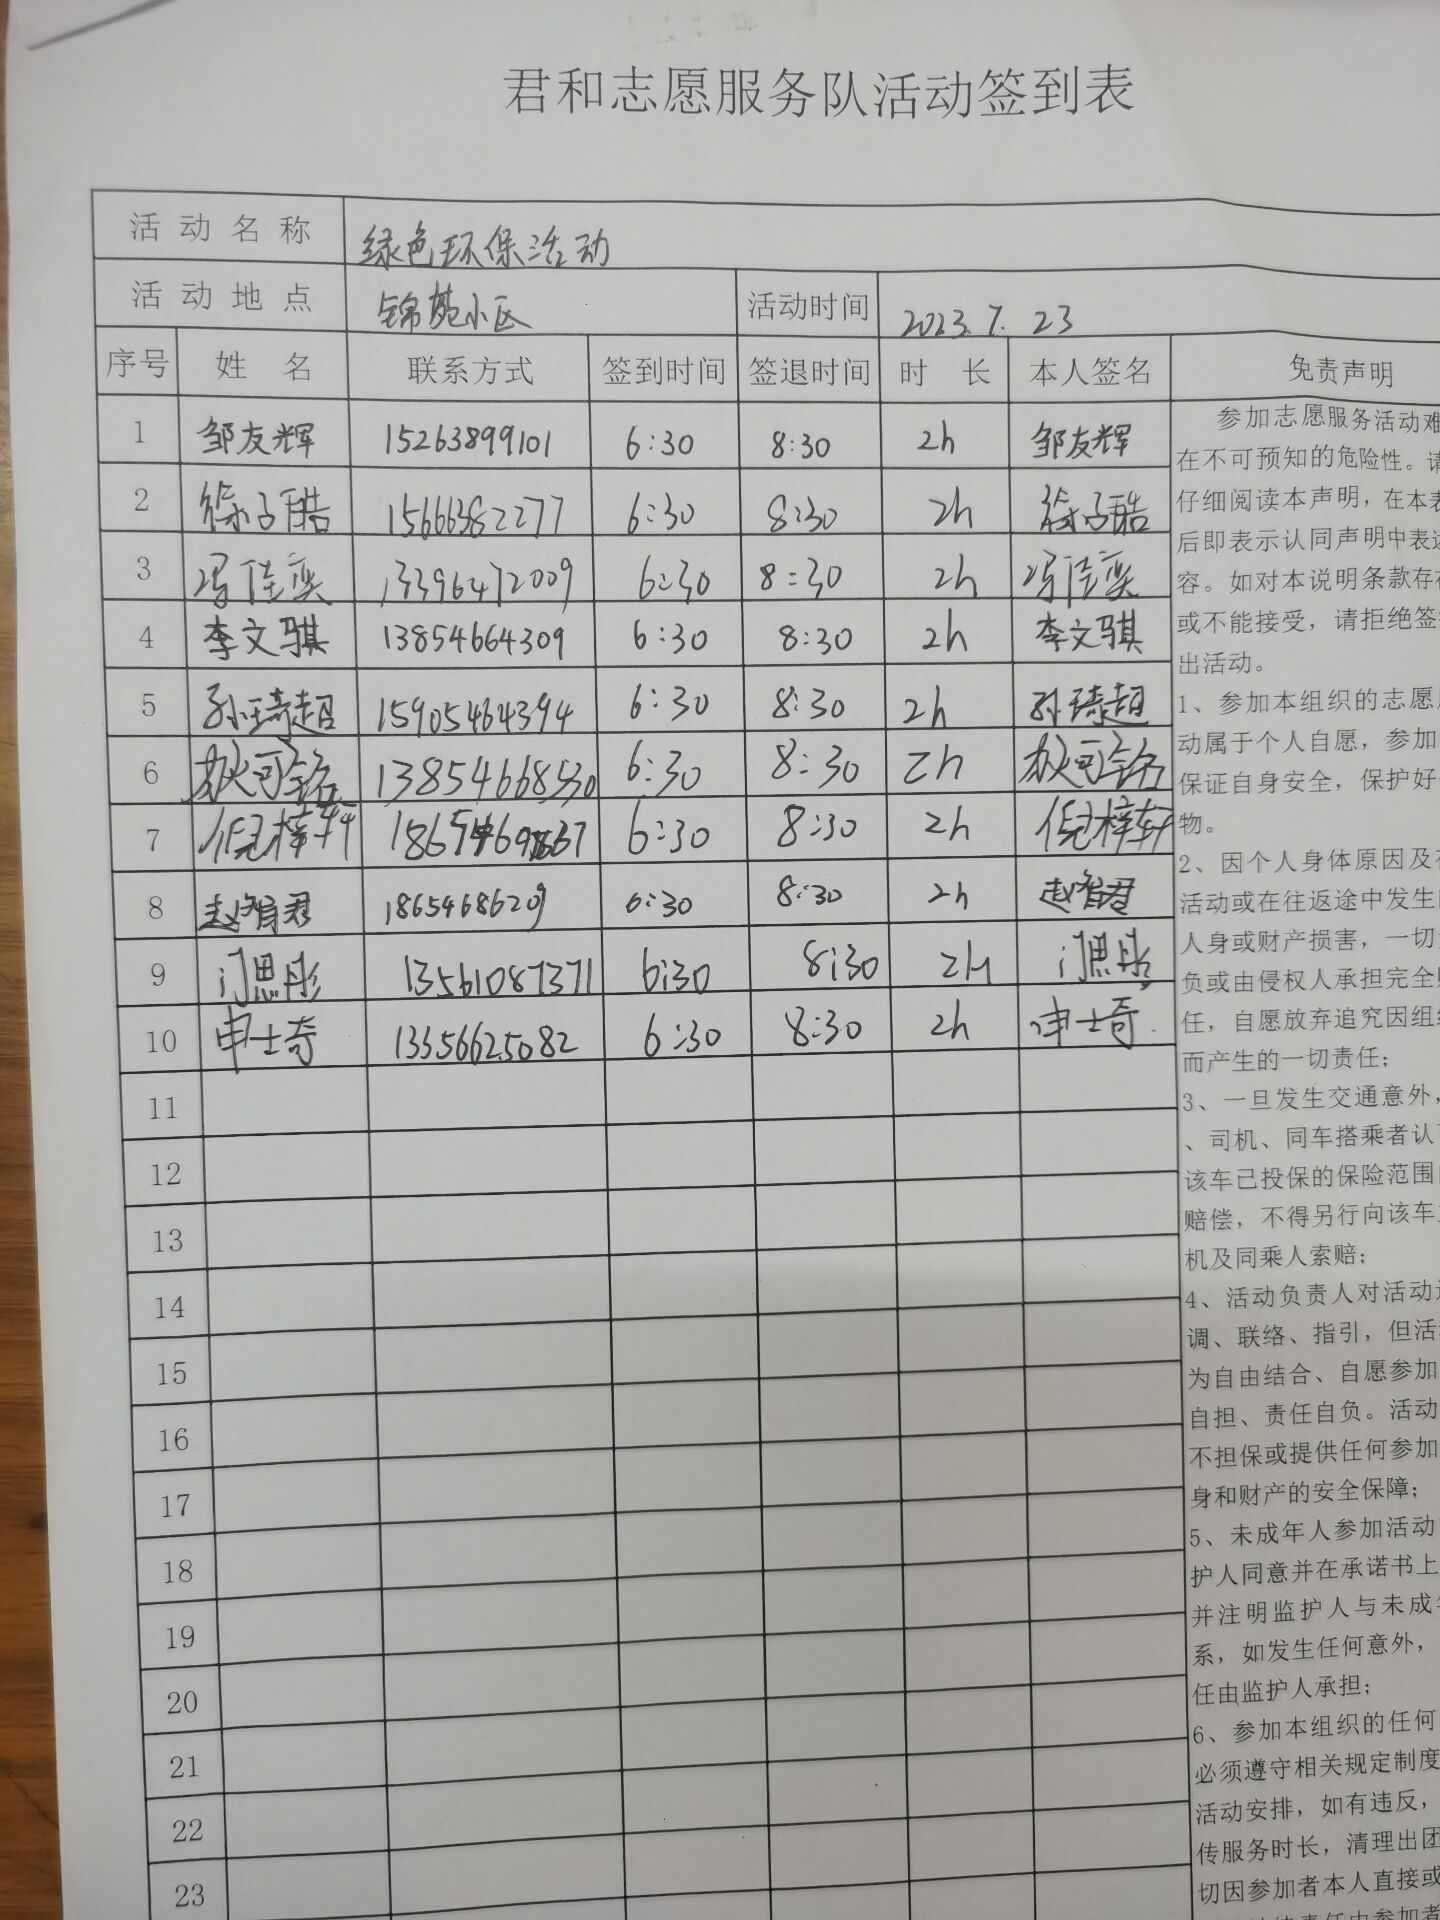 君和志愿服务队活动签到表
活动名称 绿色环保活动
活动地点 锦苑小区 活动时间 2023.7.23
序号 姓名 联系方式 签到时间 签退时间 时长 本人签名 免责声明
1 邹友辉 15263899101 6:30 8:30 2h 邹友辉
2 徐子酷 15666382277 6:30 8:30 2h 徐子酷
3 冯佳奕 13396472009 6:30 8:30 2h 冯佳奕
4 李文骐 13854664309 6:30 8:30 2h 李文骐
5 孙琦超 15905464394 6:30 8:30 2h 孙琦超
6 13854668530 6:30 8:30 2h
7 倪梓轩 6:30 8:30 2h 倪梓轩
8 赵智君 18654686209 6:30 8:30 2h 赵智君
9 门思彤 13561087371 6:30 8:30 2h 门思彤
10 申士奇 13356625082 6:30 8:30 2h 申士奇
11
12
13
14
15
16
17
18
19
20
21
22
23
参加志愿服务活动难
在不可预知的危险性。请
仔细阅读本声明，在本表
后即表示认同声明中表达
容。如对本说明条款存在
或不能接受，请拒绝签
出活动。
1、参加本组织的志愿
动属于个人自愿，参加
保证自身安全，保护好
物。
2、因个人身体原因及
活动或在往返途中发生
人身或财产损害，一切
负或由侵权人承担完全
任，自愿放弃追究因组
而产生的一切责任；
3、一旦发生交通意外，
、司机、同车搭乘者认
该车已投保的保险范围
赔偿，不得另行向该车
机及同乘人索赔；
4、活动负责人对活动
调、联络、指引，但活
为自由结合、自愿参加
自担、责任自负。活动
不担保或提供任何参加
身和财产的安全保障；
5、未成年人参加活动
护人同意并在承诺书上
并注明监护人与未成
系，如发生任何意外，
任由监护人承担；
6、参加本组织的任何
必须遵守相关规定制度
活动安排，如有违反，
传服务时长，清理出团
切因参加者本人直接或